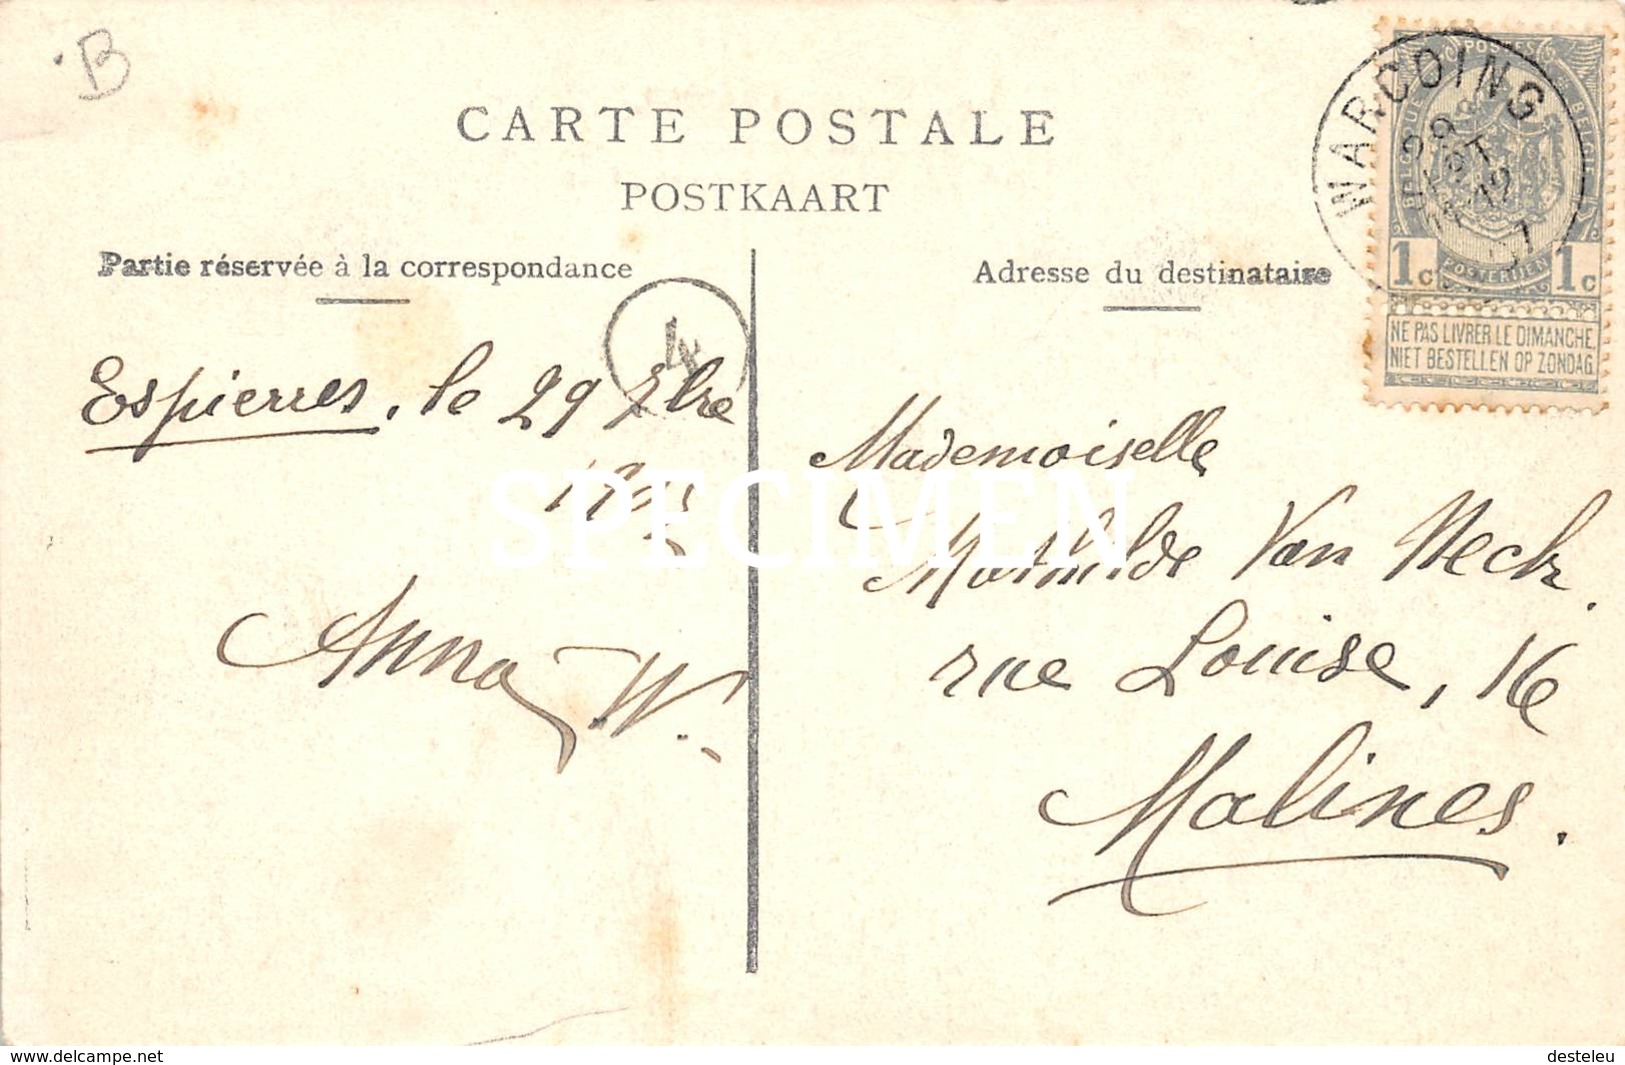 B
CARTE POSTALE
POSTKAART
Partie réservée à la correspondance
Adresse du destinataire
WARCOING
POSTES
BELGIQUE
BELGIË
POSTERIJEN
1c 1c
NE PAS LIVRER LE DIMANCHE
NIET BESTELLEN OP ZONDAG
4
Espierres, le 29 7bre
Anna W.
Mademoiselle
Mathilde Van Neck.
rue Louise, 16
Malines.
SPECIMEN
www.delcampe.net
desteleu